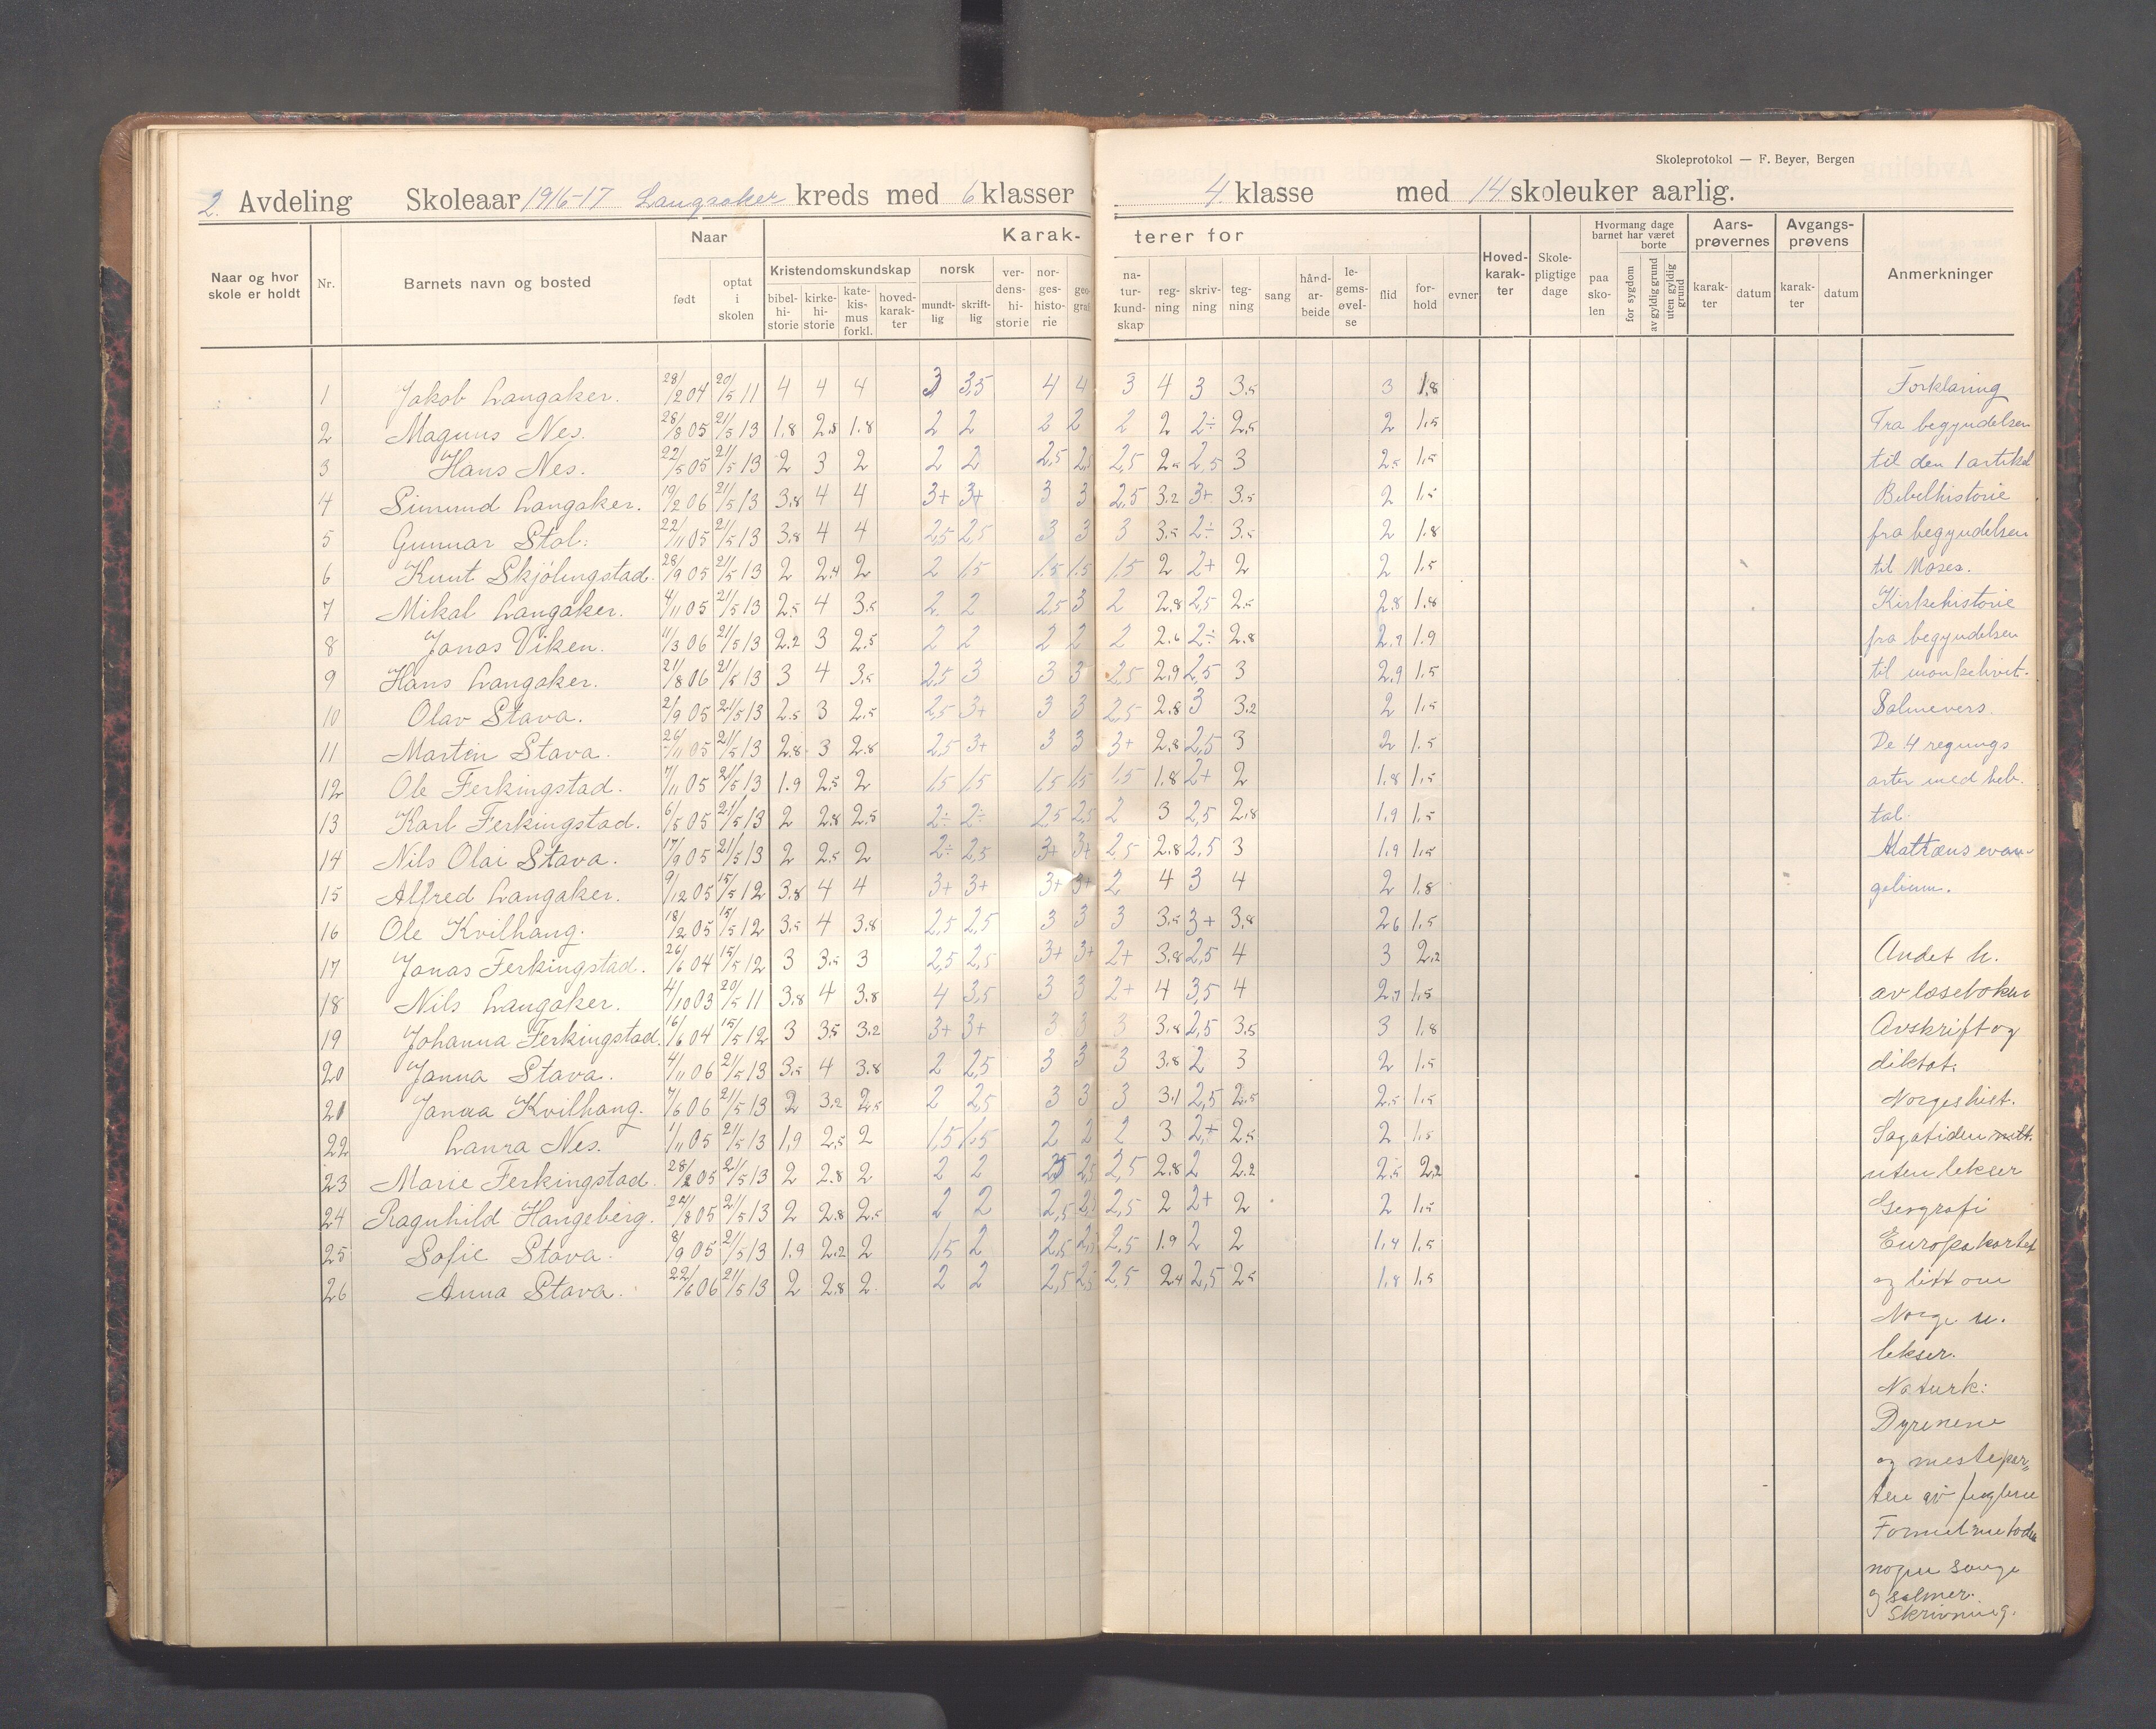 Skoleprotokol — F. Beyer, Bergen
2. Avdeling Skoleaar 1916-17 Langaaker kreds med 6 klasser 4. klasse med 14 skoleuker aarlig.
Naar og hvor skole er holdt | Nr. | Barnets navn og bosted | Naar | født | optat i skolen | Karakterer for | Kristendomskundskap | bibelhistorie | kirkehistorie | katekismus forkl. | hovedkarakter | norsk | mundtlig | skriftlig | verdenshistorie | norgeshistorie | geografi | naturkundskap | regning | skrivning | tegning | sang | håndarbeide | legemsøvelse | flid | forhold | evner | Hovedkarakter | Skolepligtige dage | Hvormang dage barnet har været borte | paa skolen | for sygdom | av gyldig grund | uten gyldig grund | Aarsprøvernes | karakter | datum | Avgangsprøvens | karakter | datum | Anmerkninger
1 Jakob Langaker. 28/12 04 20/5 11 4 4 4 3 3,5 4 4 3 4 3 3.5 3 1.8 Forklaring
2 Magnus Nes. 28/8 05 21/5 13 1.8 2.8 1.8 2 2 2 2 2 2 2÷ 2.5 2 1.5 Fra begyndelsen
3 Hans Nes. 22/5 05 21/5 13 2 3 2 2 2 2,5 2,5 2,5 2.5 2,5 3 2.5 1.5 til den 1 artikel
4 Simund Langaker. 19/2 06 21/5 13 3.8 4 4 3+ 3+ 3 3 2,5 3.2 3+ 3.5 2 1.5 Bibelhistorie
5 Gunnar Stol. 22/11 05 21/5 13 3.8 4 4 2,5 2,5 3 3 3 3.5 2÷ 3.5 2 1.8 fra begyndelsen
6 Knut Skjölingstad. 28/9 05 21/5 13 2 2.4 2 2 1,5 1.5 1.5 1.5 2 2+ 2 2 1.5 til Moses.
7 Mikal Langaker. 4/11 05 21/5 13 2.5 4 3.5 2 2 2,5 3 2 2.8 2,5 2.5 2.8 1.8 Kirkehistorie
8 Jonas Viken. 11/3 06 21/5 13 2.2 3 2.5 2 2 2 2 2 2.6 2÷ 2.8 2.7 1.9 fra begyndelsen
9 Hans Langaker. 21/8 06 21/5 13 3 4 3.5 2,5 3 3 3 2,5 2.9 2,5 3 2.9 1.5
10 Olav Stava. 2/9 05 21/5 13 2.5 3 2.5 2,5 3+ 3 3 2,5 2.8 3 3.2 2 1.5 Salmevers
11 Martin Stava. 26/11 05 21/5 13 2.8 3 2.8 2,5 3+ 3 3 3+ 2.8 2,5 3 2 1.5 De 4 regnings
12 Ole Ferkingstad. 7/11 05 21/5 13 1.9 2.5 2 1,5 1,5 1,5 1,5 1.5 1.8 2+ 2 1.8 1.5 arter med hel.
13 Karl Ferkingstad. 6/5 05 21/5 13 2 2.8 2.5 2÷ 2÷ 2,5 2,5 2 3 2,5 2.8 1.9 1.5 tal.
14 Nils Olai Stava. 17/9 05 21/5 13 2 2.5 2 2÷ 2,5 3+ 3+ 2,5 2.8 2,5 3 1.9 1.5 Mattæus evan-
15 Alfred Langaker. 9/12 05 15/5 12 3.8 4 4 3+ 3+ 3+ 3+ 2 4 3 4 2 1.8 gelium.
16 Ole Kvilhaug. 18/2 05 15/5 12 3.5 4 3.8 2,5 2,5 3 3 3 3.5 3+ 3.8 2.6 1.5
17 Jonas Ferkingstad. 26/6 04 15/5 12 3 3.5 3 2,5 2,5 3+ 3+ 2+ 3.8 2,5 4 3 2.2 Andet h.
18 Nils Langaker. 4/10 03 20/5 11 3.8 4 3.8 4 3,5 3 3 2+ 4 3,5 4 2.7 1.5 av læseboken
19 Johanna Ferkingstad. 16/6 04 15/5 12 3 3.5 3.2 3+ 3+ 3 3 3 3.8 2,5 3.5 3 1.8 Avskrift og
20 Janna Stava. 4/11 06 21/5 13 3.5 4 3.8 2 2,5 3 3 3 3.8 2 3 2 1.5 diktat.
21 Janna Kvilhaug. 7/6 06 21/5 13 2 3.2 2.5 2 2,5 3 3 3 3.1 2,5 2.5 2.5 1.5 Norgeshist.
22 Laura Nes. 1/11 05 21/5 13 1,9 2.5 2 1,5 1,5 2 2 2 3 2+ 2.5 2 1.5 Sagatiden
23 Marie Ferkingstad. 28/2 05 21/5 13 2 2.8 2 2 2 2,5 2,5 2,5 2.8 2 2.2 2.5 2.2 uten lekser
24 Ragnhild Haugeberg. 24/8 05 21/5 13 2 2.8 2.5 2 2 2,5 2,5 2,5 2 2+ 2 2 1.5 Geografi
25 Sofie Stava. 8/9 05 21/5 13 1.9 2.2 2 1,5 2 2,5 2,5 2,5 1.9 2 2 1.4 1.5 Europakartet
26 Anna Stava. 22/6 06 21/5 13 2 2.8 2. 2 2 2,5 2,5 2,5 2.4 2,5 2.5 1.8 1.5 og litt om
Norge u.
lekser.
Naturk:
Dyrenene
og mestepar=
ten av fuglene
Formelmetoden
nogen sange
og salmer.
Skrivning.